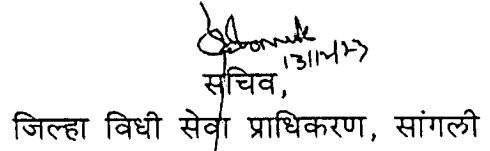 13/12/23
सचिव,
जिल्हा विधी सेवा प्राधिकरण, सांगली